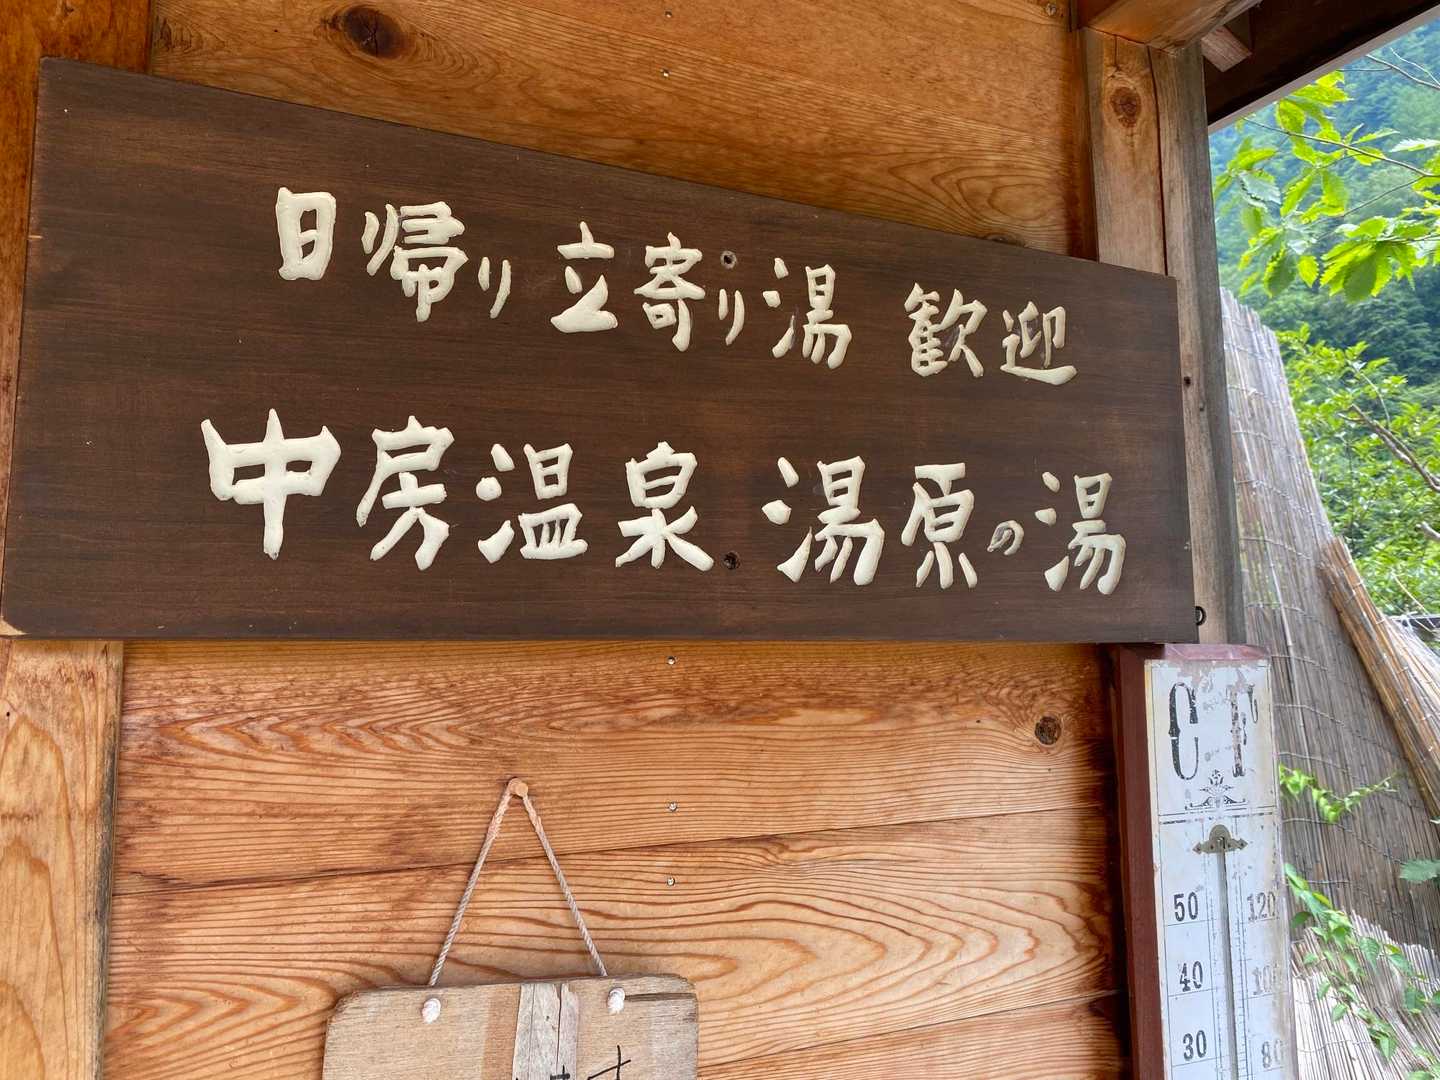 日帰り 立寄り湯 歓迎
中房温泉 湯原の湯
C F
50 120
40 100
30 80